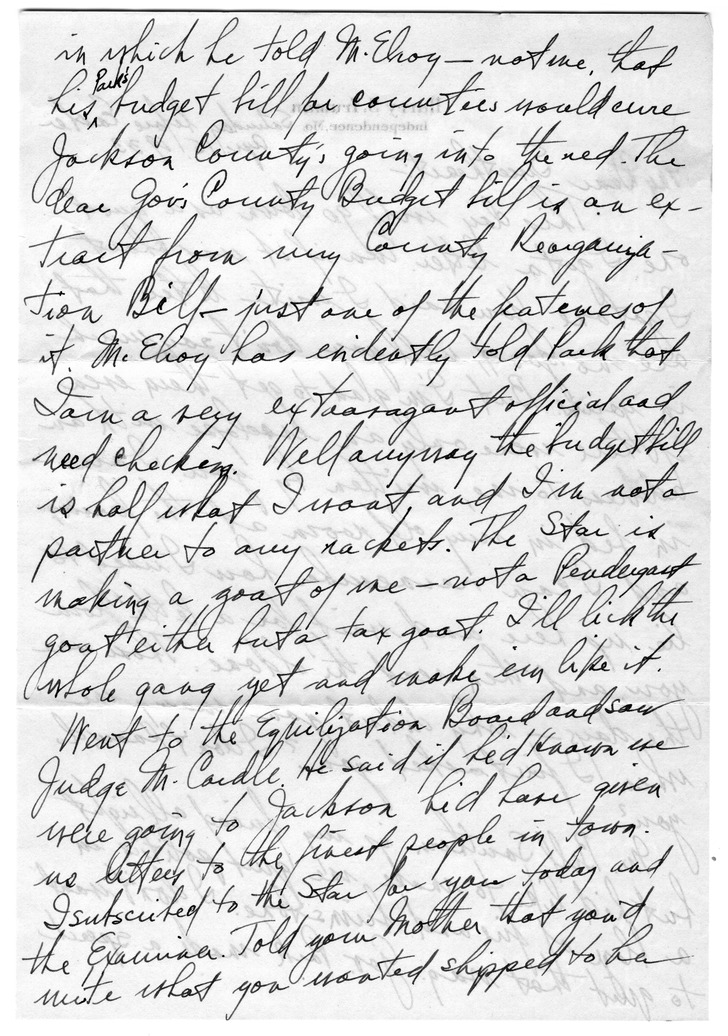 in which he told McElroy – not me, that
his Park's budget bill for counties would cure
Jackson County's going into the red. The
dear Gov's County Budget bill is an ex-
tract from my County Reorganiza-
tion Bill – just one of the features of
it. McElroy has evidently told Park that
I am a very extravagant official and
need checking. Well anyway the budget bill
is half what I want, and I'm not a
partner to any rackets. The Star is
making a goat of me – not a Pendergast
goat either but a tax goat. I'll lick the
whole gang yet and make 'em like it.
Went to the Equilization Board and saw
Judge McCardle. He said if he'd known we
were going to Jackson he'd have given
us letters to the finest people in town.
I subscribed to the Star for you today and
the Examiner. Told your Mother that you'd
write what you wanted shipped to her